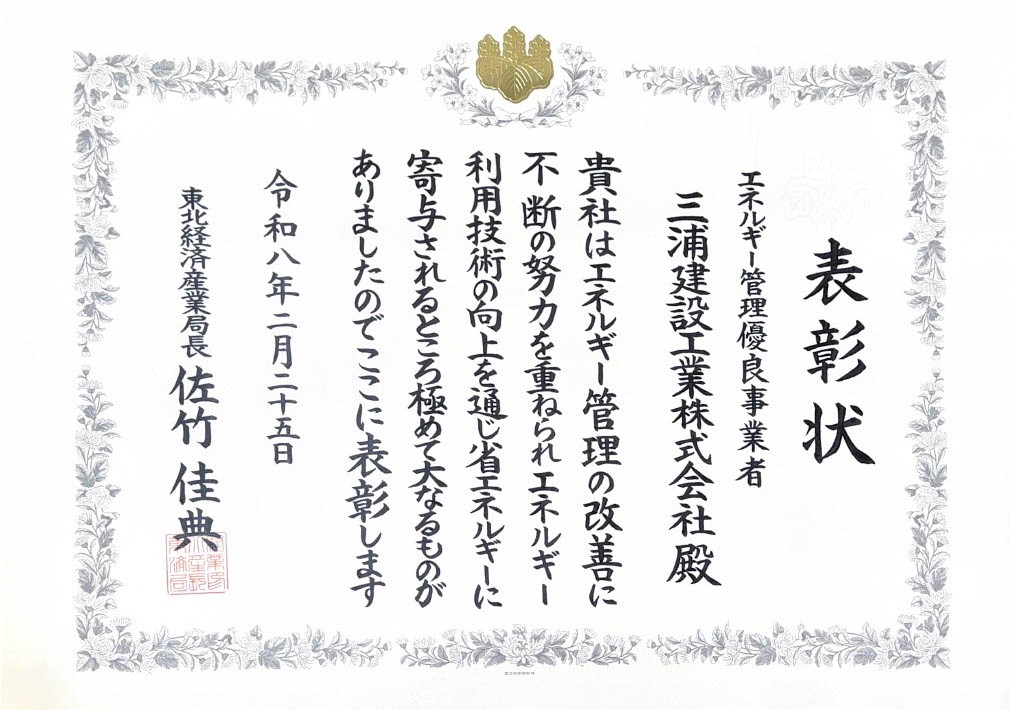 表彰状
エネルギー管理優良事業者
三浦建設工業株式会社殿
貴社はエネルギー管理の改善に
不断の努力を重ねられエネルギー
利用技術の向上を通じ省エネルギーに
寄与されるところ極めて大なるものが
ありましたのでここに表彰します
令和八年二月二十五日
東北経済産業局長 佐竹 佳典